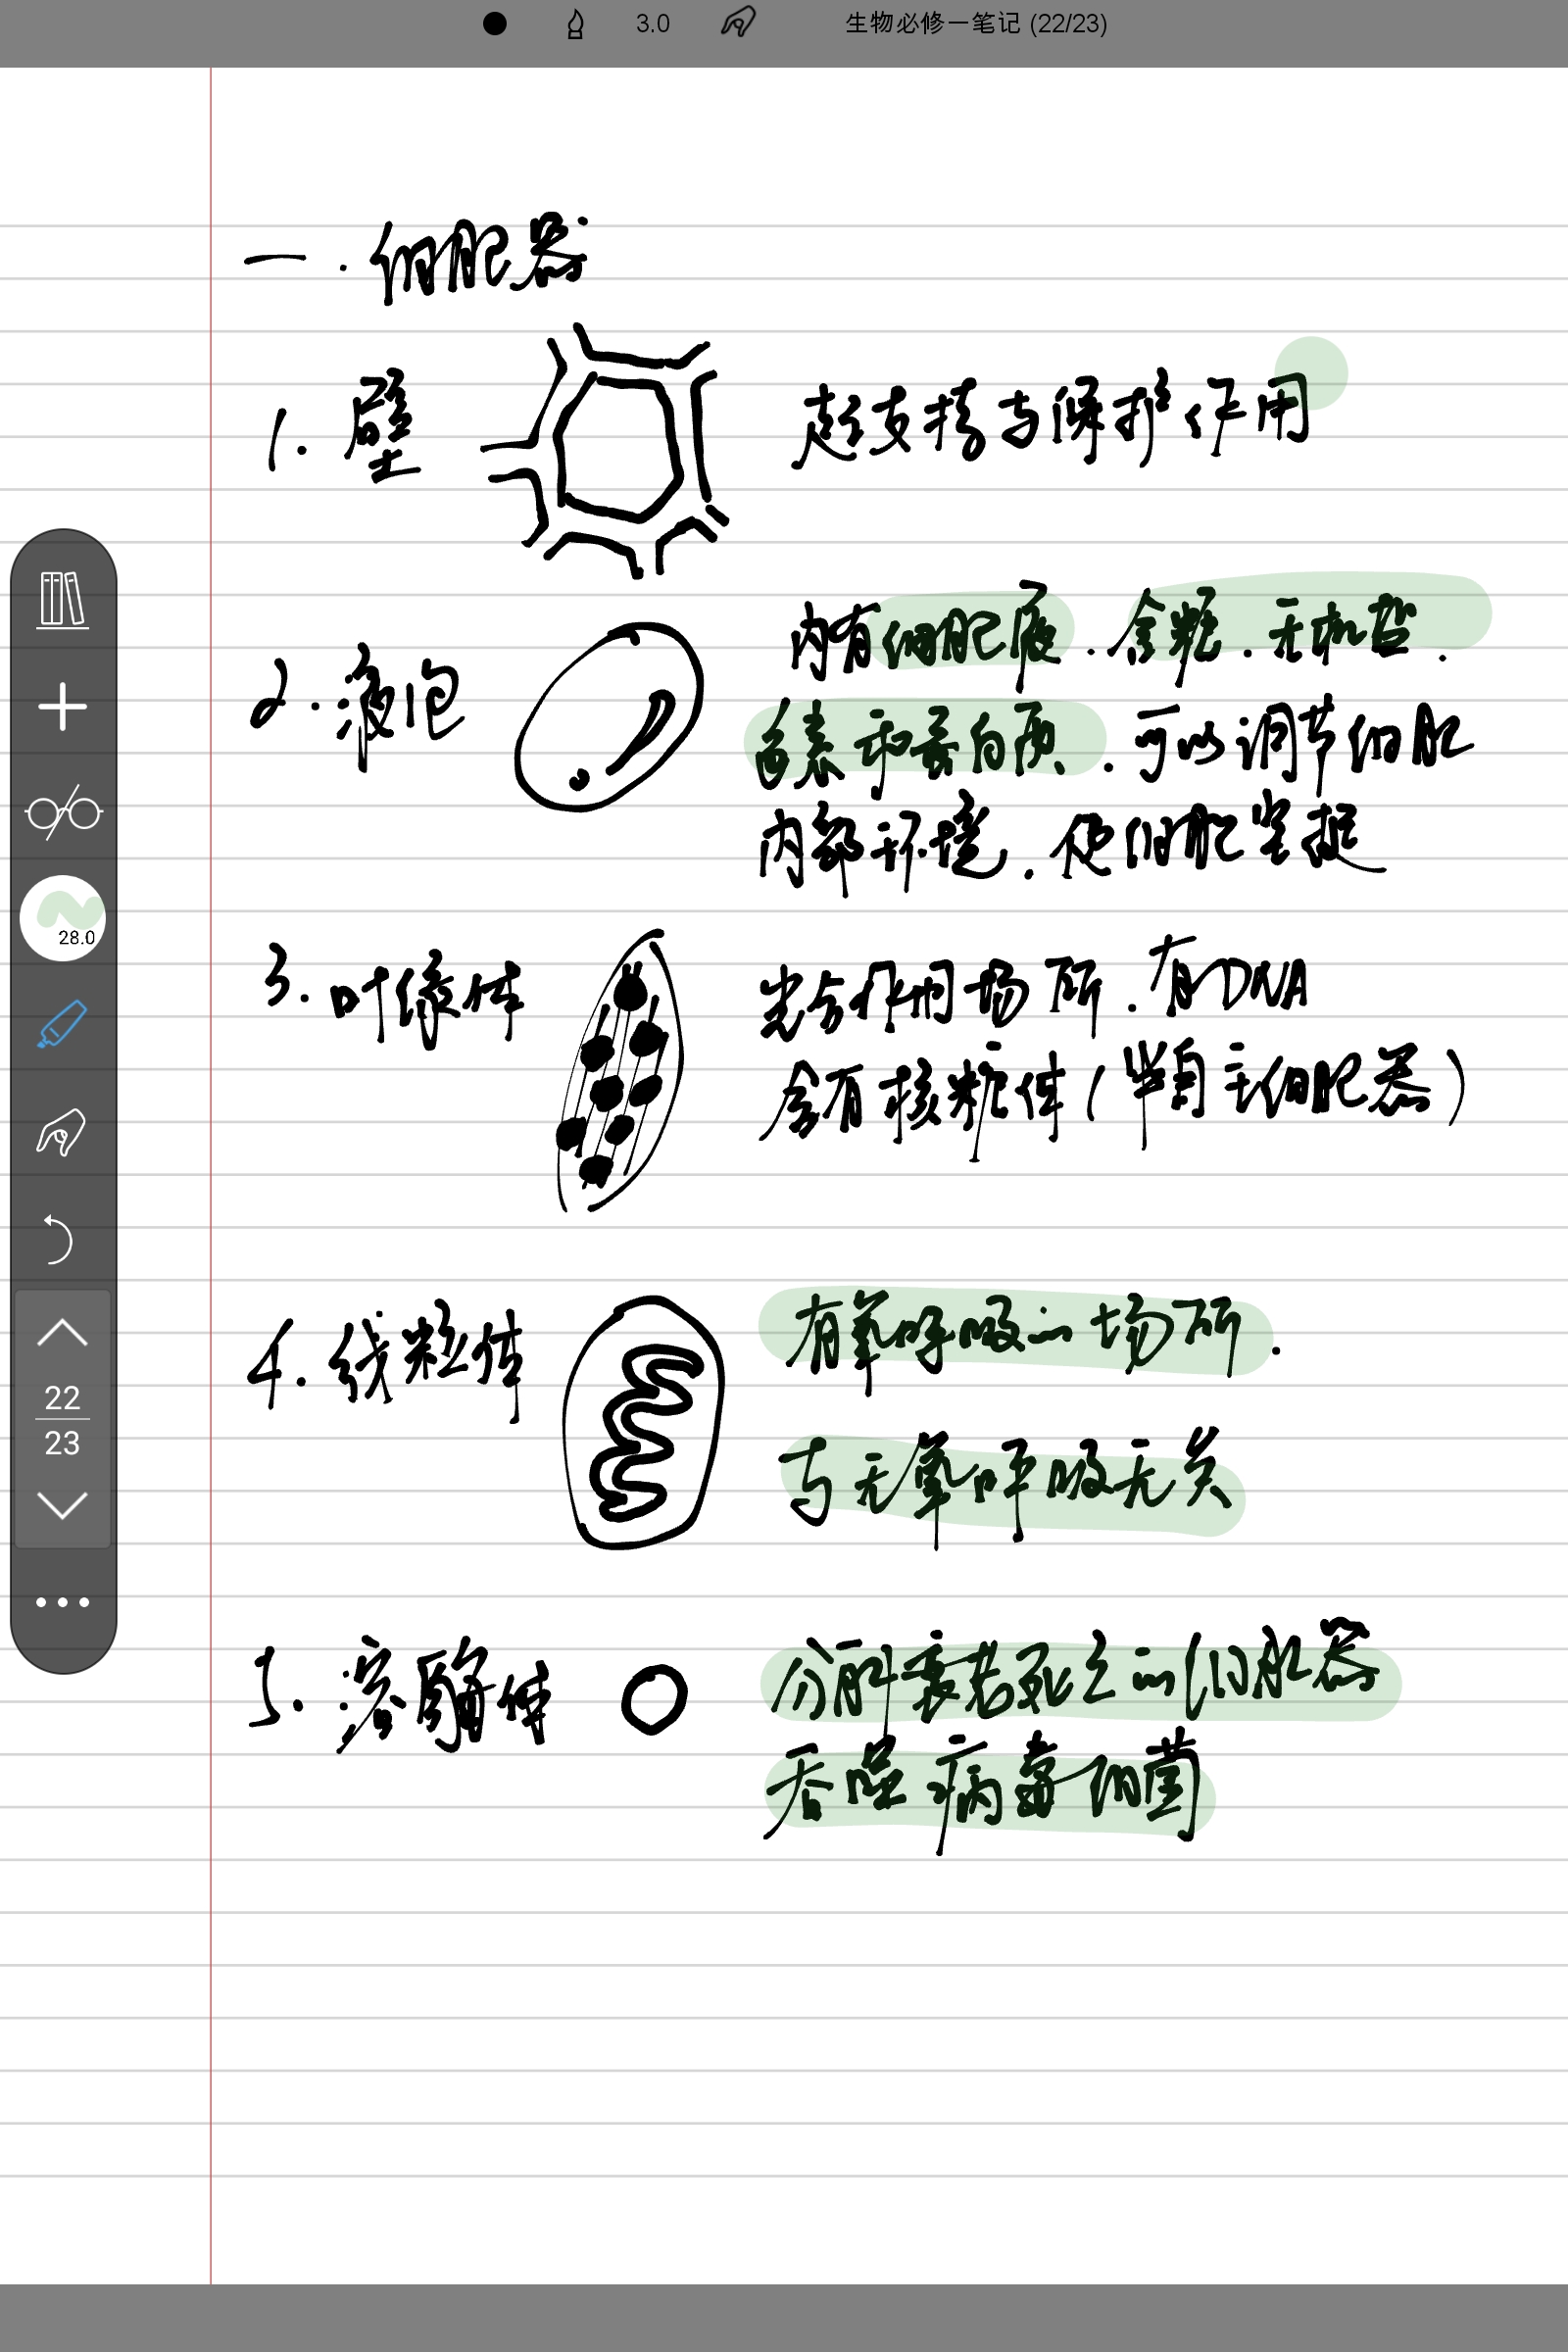 3.0 生物必修一笔记 (22/23)
一.细胞器
1.壁
起支持与保护作用
2.液泡
内有细胞液.含糖.无机盐.
色素和蛋白质.可以调节细胞
内部环境.使细胞坚挺
3.叶绿体
光合作用场所.有DNA
含有核糖体(半自主细胞器)
4.线粒体
有氧呼吸的场所.
与无氧呼吸无关
5.溶酶体
分解衰老死亡的细胞器
吞噬病毒细菌
28.0
22
23